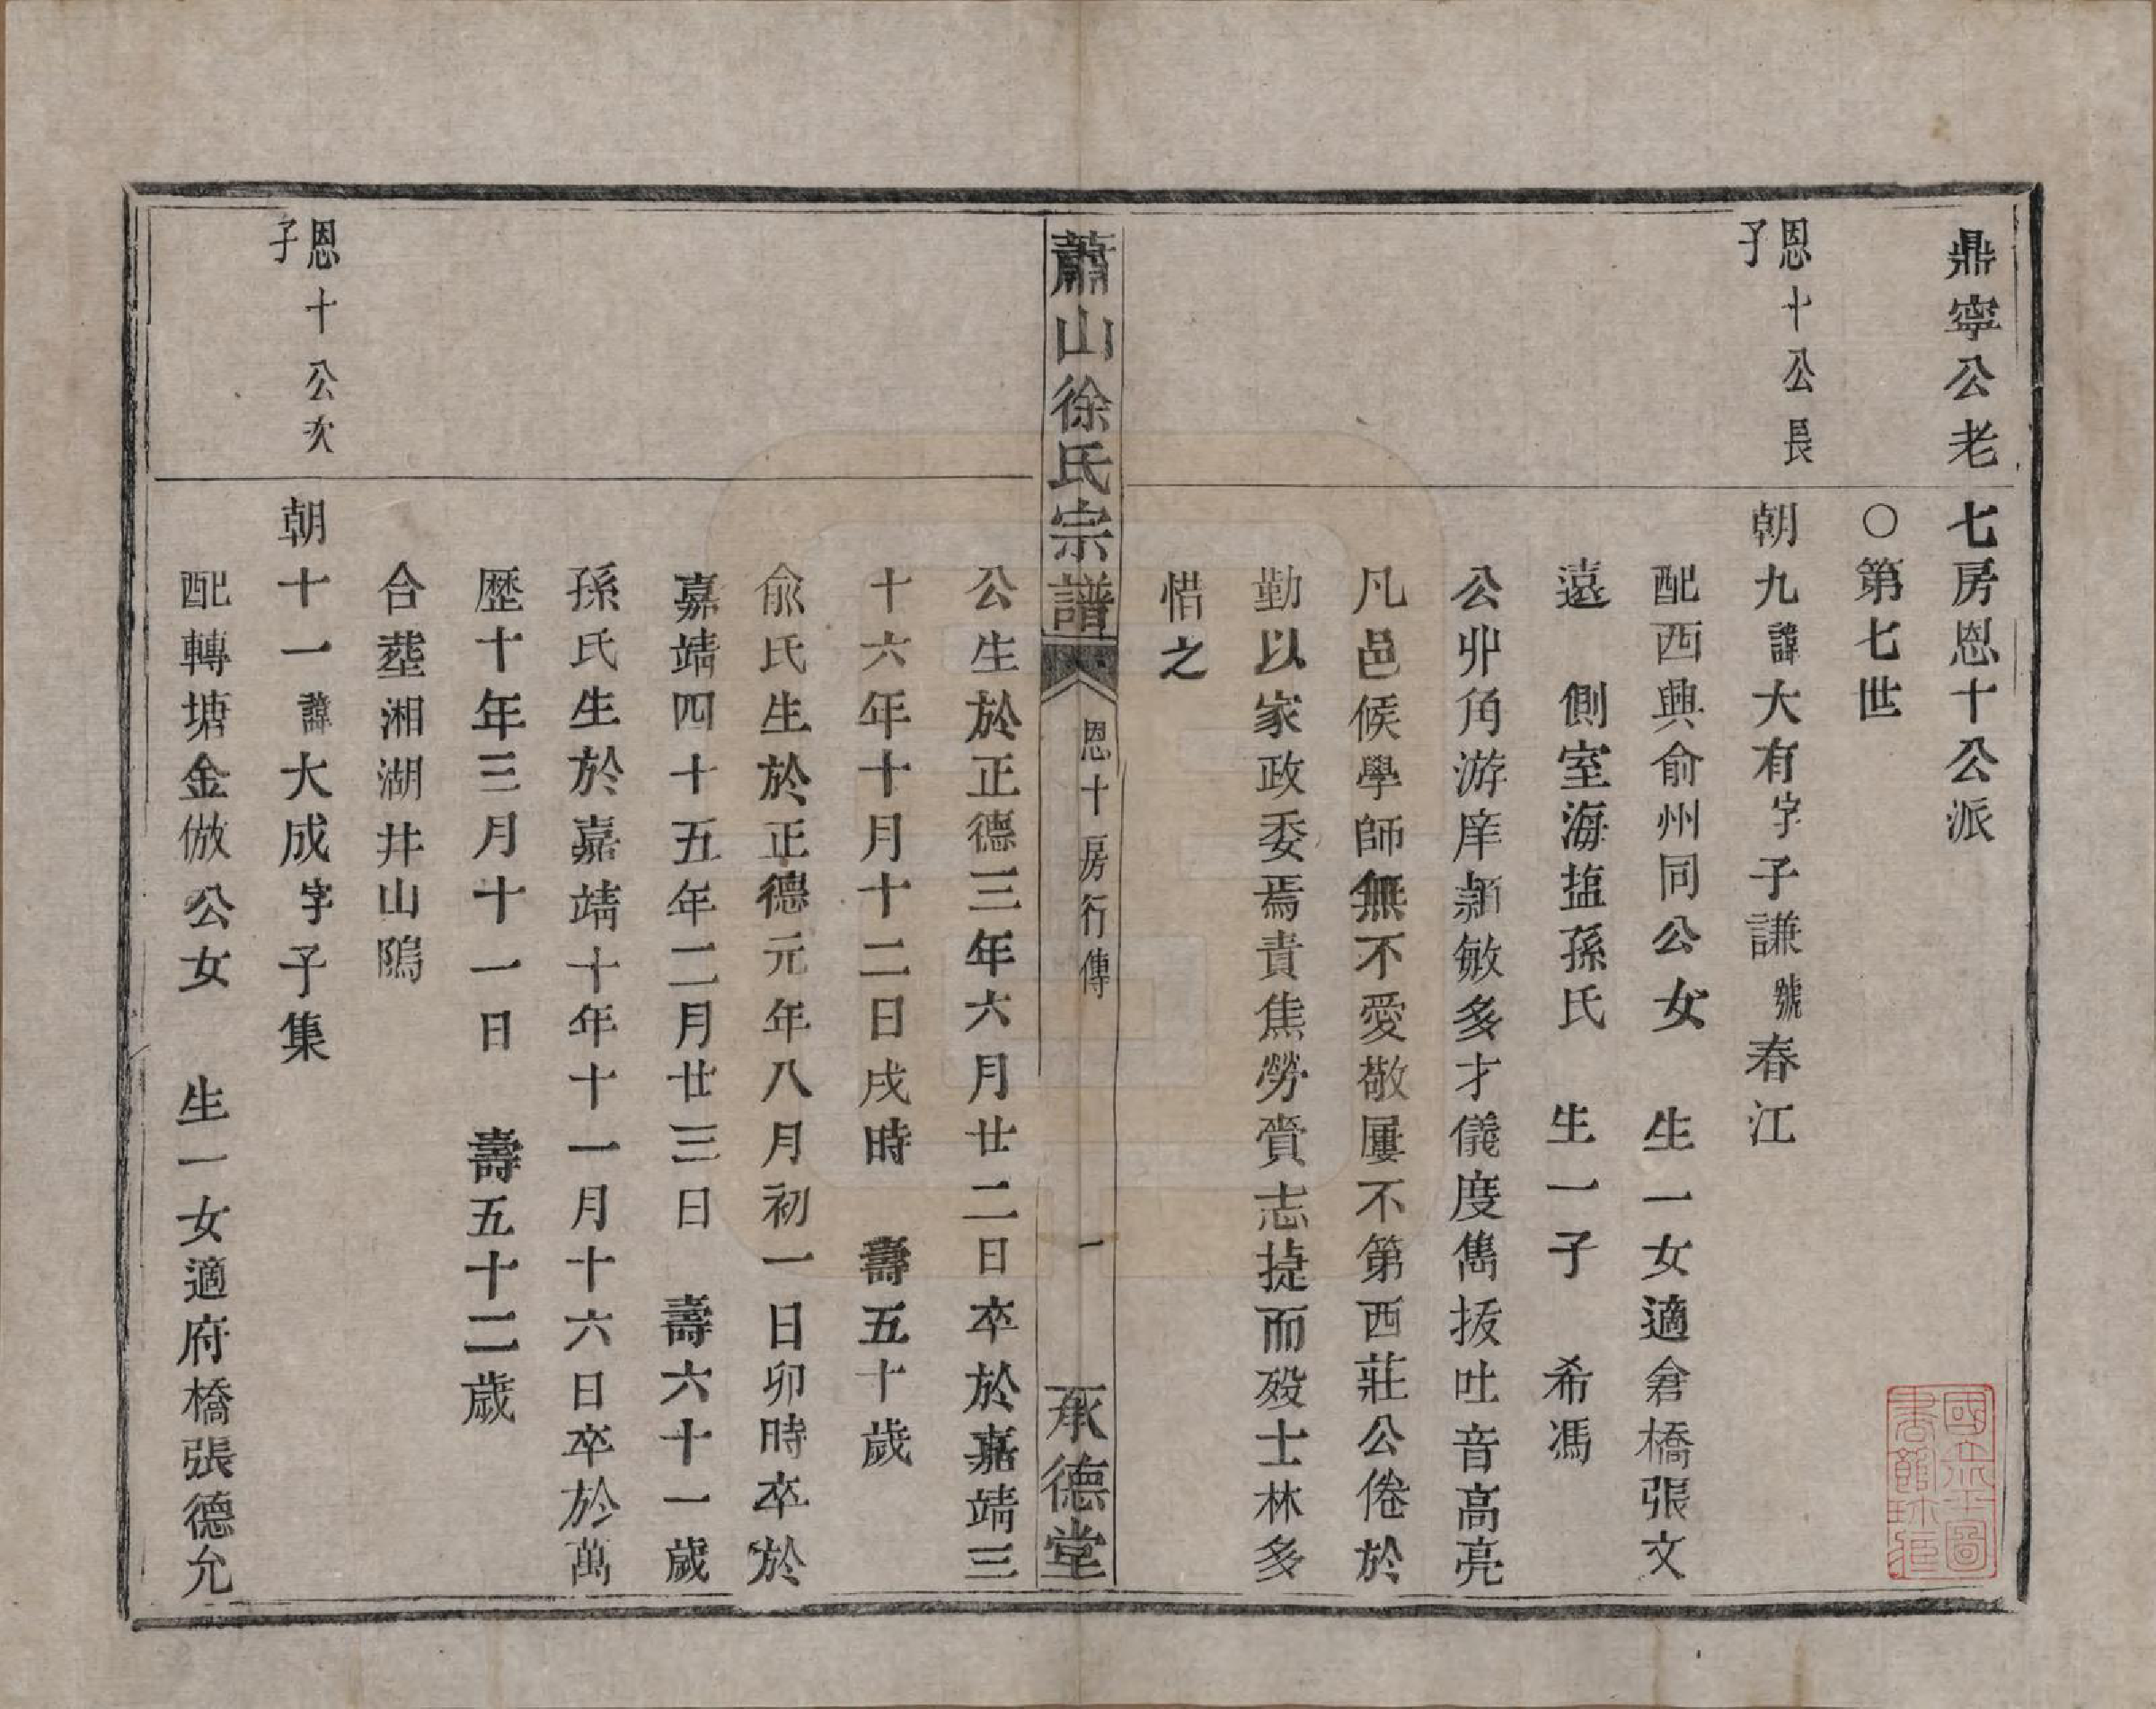 鼎寧公老七房恩十公派
○第七世
恩十公長子
朝九諱大有字子謙號春江
配西興俞州同公女　生一女適倉橋張文
遠　側室海塩孫氏　生一子　希馮
公丱角游庠穎敏多才儀度雋拔吐音高亮
凡邑候學師無不愛敬屢不第西莊公倦於
勤以家政委焉責焦勞賫志㨗而殁士林多
惜之
蕭山徐氏宗譜　恩十房行傳　一　承德堂
公生於正德三年六月廿二日卒於嘉靖三
十六年十月十二日戌時　壽五十歲
俞氏生於正德元年八月初一日卯時卒於
嘉靖四十五年二月廿三日　壽六十一歲
孫氏生於嘉靖十年十一月十六日卒於萬
歷十年三月十一日　壽五十二歲
合塟湘湖井山隖
恩十公次子
朝十一諱大成字子集
配轉塘金倣公女　生一女適府橋張德允